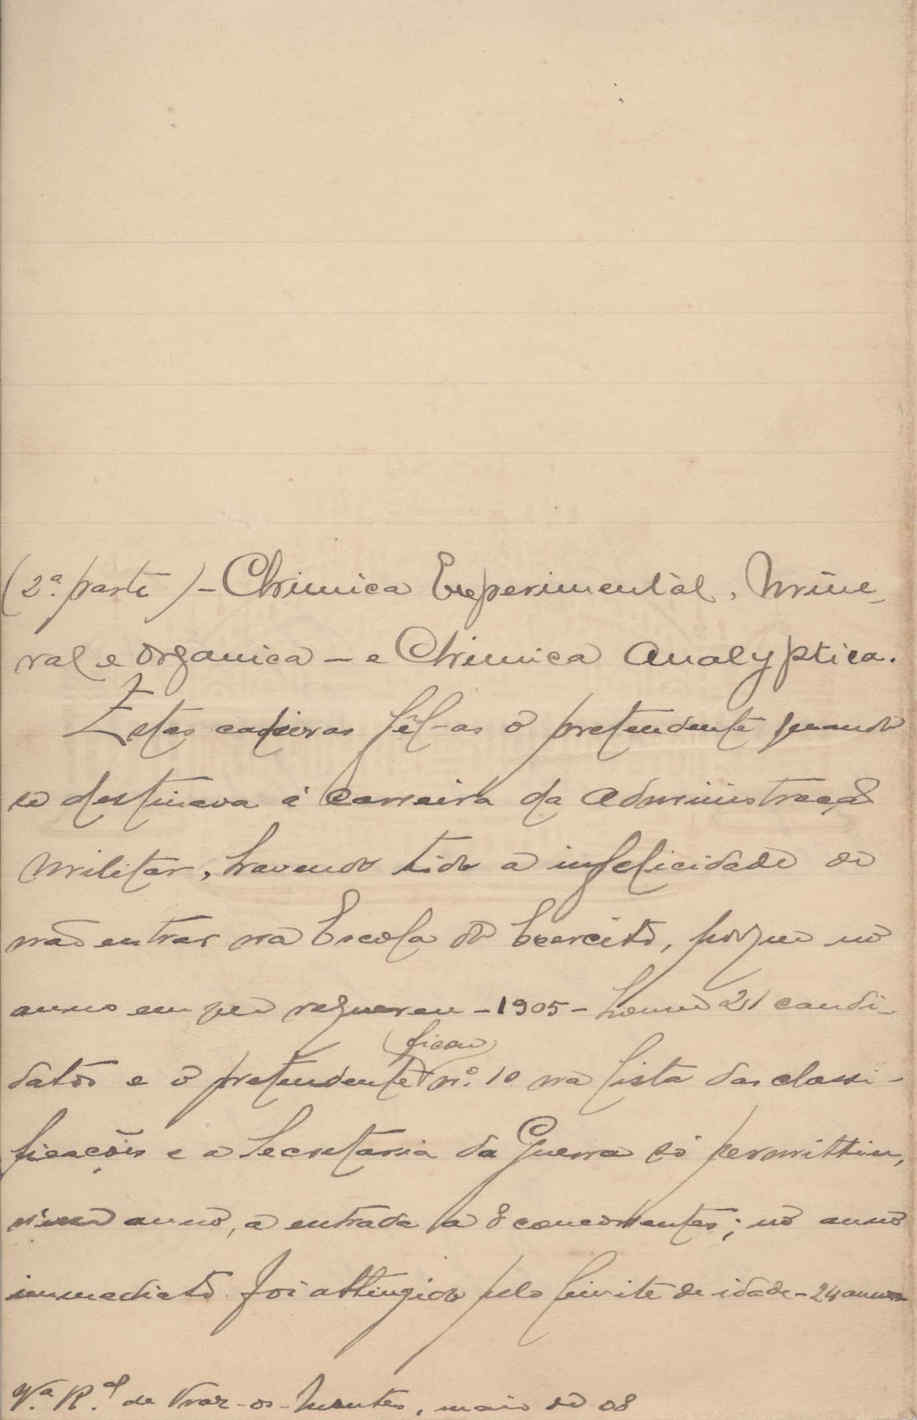 (2.ª parte) - Chimica Experimental, Mine-
ral e Organica - e Chimica Analyptica.
Estas cadeiras fêl-as o pretendente quando
se destinava á carreira da Administração
Militar, havendo tido a infelicidade de
não entrar na Escola do Exercito, porque no
anno em que requereu - 1905 - houve 21 candi-
(ficou)
datos e o pretendente n.º 10 na lista das classi-
ficações e a Secretaria da Guerra só permittiu,
n'esse anno, a entrada a 8 concorrentes; no anno
immediato foi attingido pelo limite de idade - 24 annos
V.ª R.al de Traz-os-Montes, maio de 08